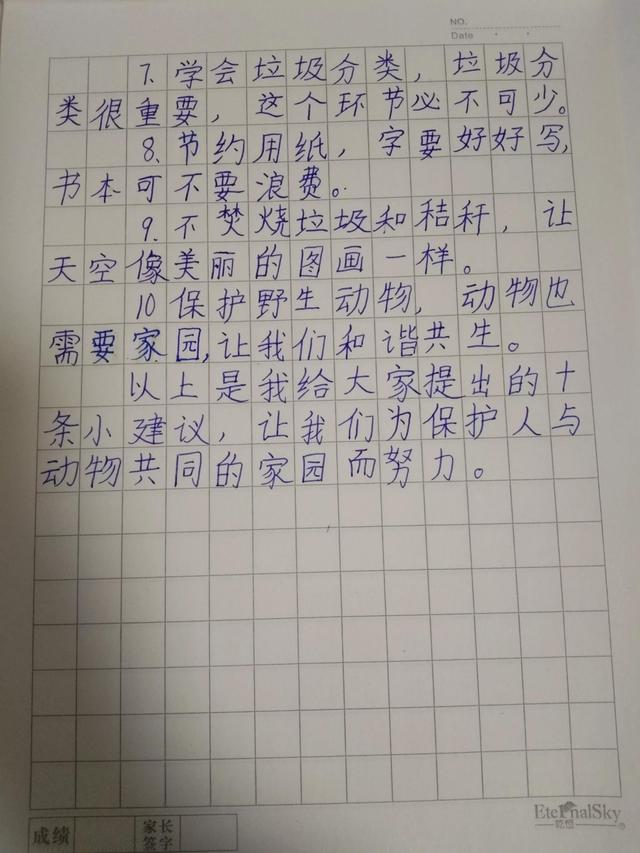 NO.
Date
7、学会垃圾分类，垃圾分
类很重要，这个环节必不可少。
8、节约用纸，字要好好写，
书本可不要浪费。
9、不焚烧垃圾和秸秆，让
天空像美丽的图画一样。
10保护野生动物，动物也
需要家园，让我们和谐共生。
以上是我给大家提出的十
条小建议，让我们为保护人与
动物共同的家园而努力。
成绩
家长签字
EternalSky